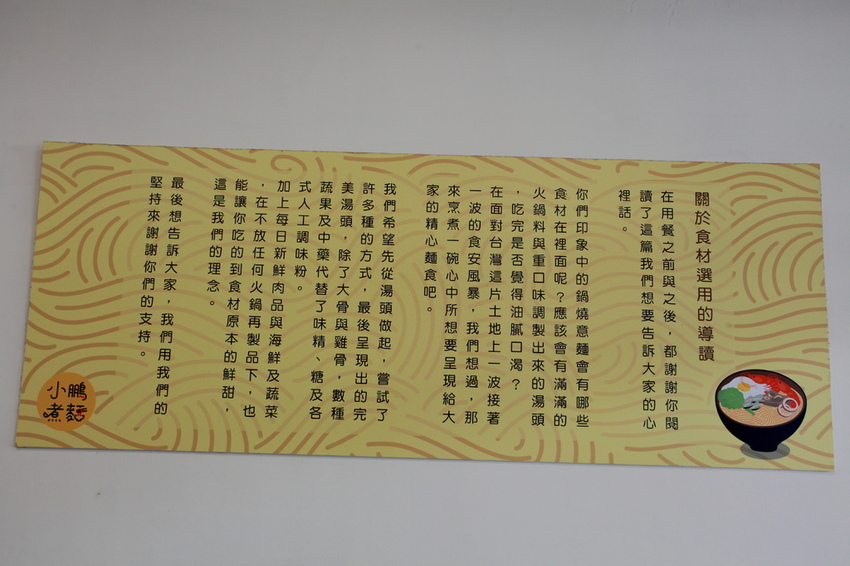 關於食材選用的導讀
在用餐之前與之後，都謝謝你閱
讀了這篇我們想要告訴大家的心
裡話。
你們印象中的鍋燒意麵會有哪些
食材在裡面呢？應該會有滿滿的
火鍋料與重口味調製出來的湯頭
，吃完是否覺得油膩口渴？
在面對台灣這片土地上一波接著
一波的食安風暴，我們想過，那
來烹煮一碗心中所想要呈現給大
家的精心麵食吧。
我們希望先從湯頭做起，嘗試了
許多種的方式，最後呈現出的完
美湯頭，除了大骨與雞骨，數種
蔬果及中藥代替了味精、糖及各
式人工調味粉。
加上每日新鮮肉品與海鮮及蔬菜
，在不放任何火鍋再製品下，也
能讓你吃的到食材原本的鮮甜，
這是我們的理念。
最後想告訴大家，我們用我們的
堅持來謝謝你們的支持。
小鵬
煮麵